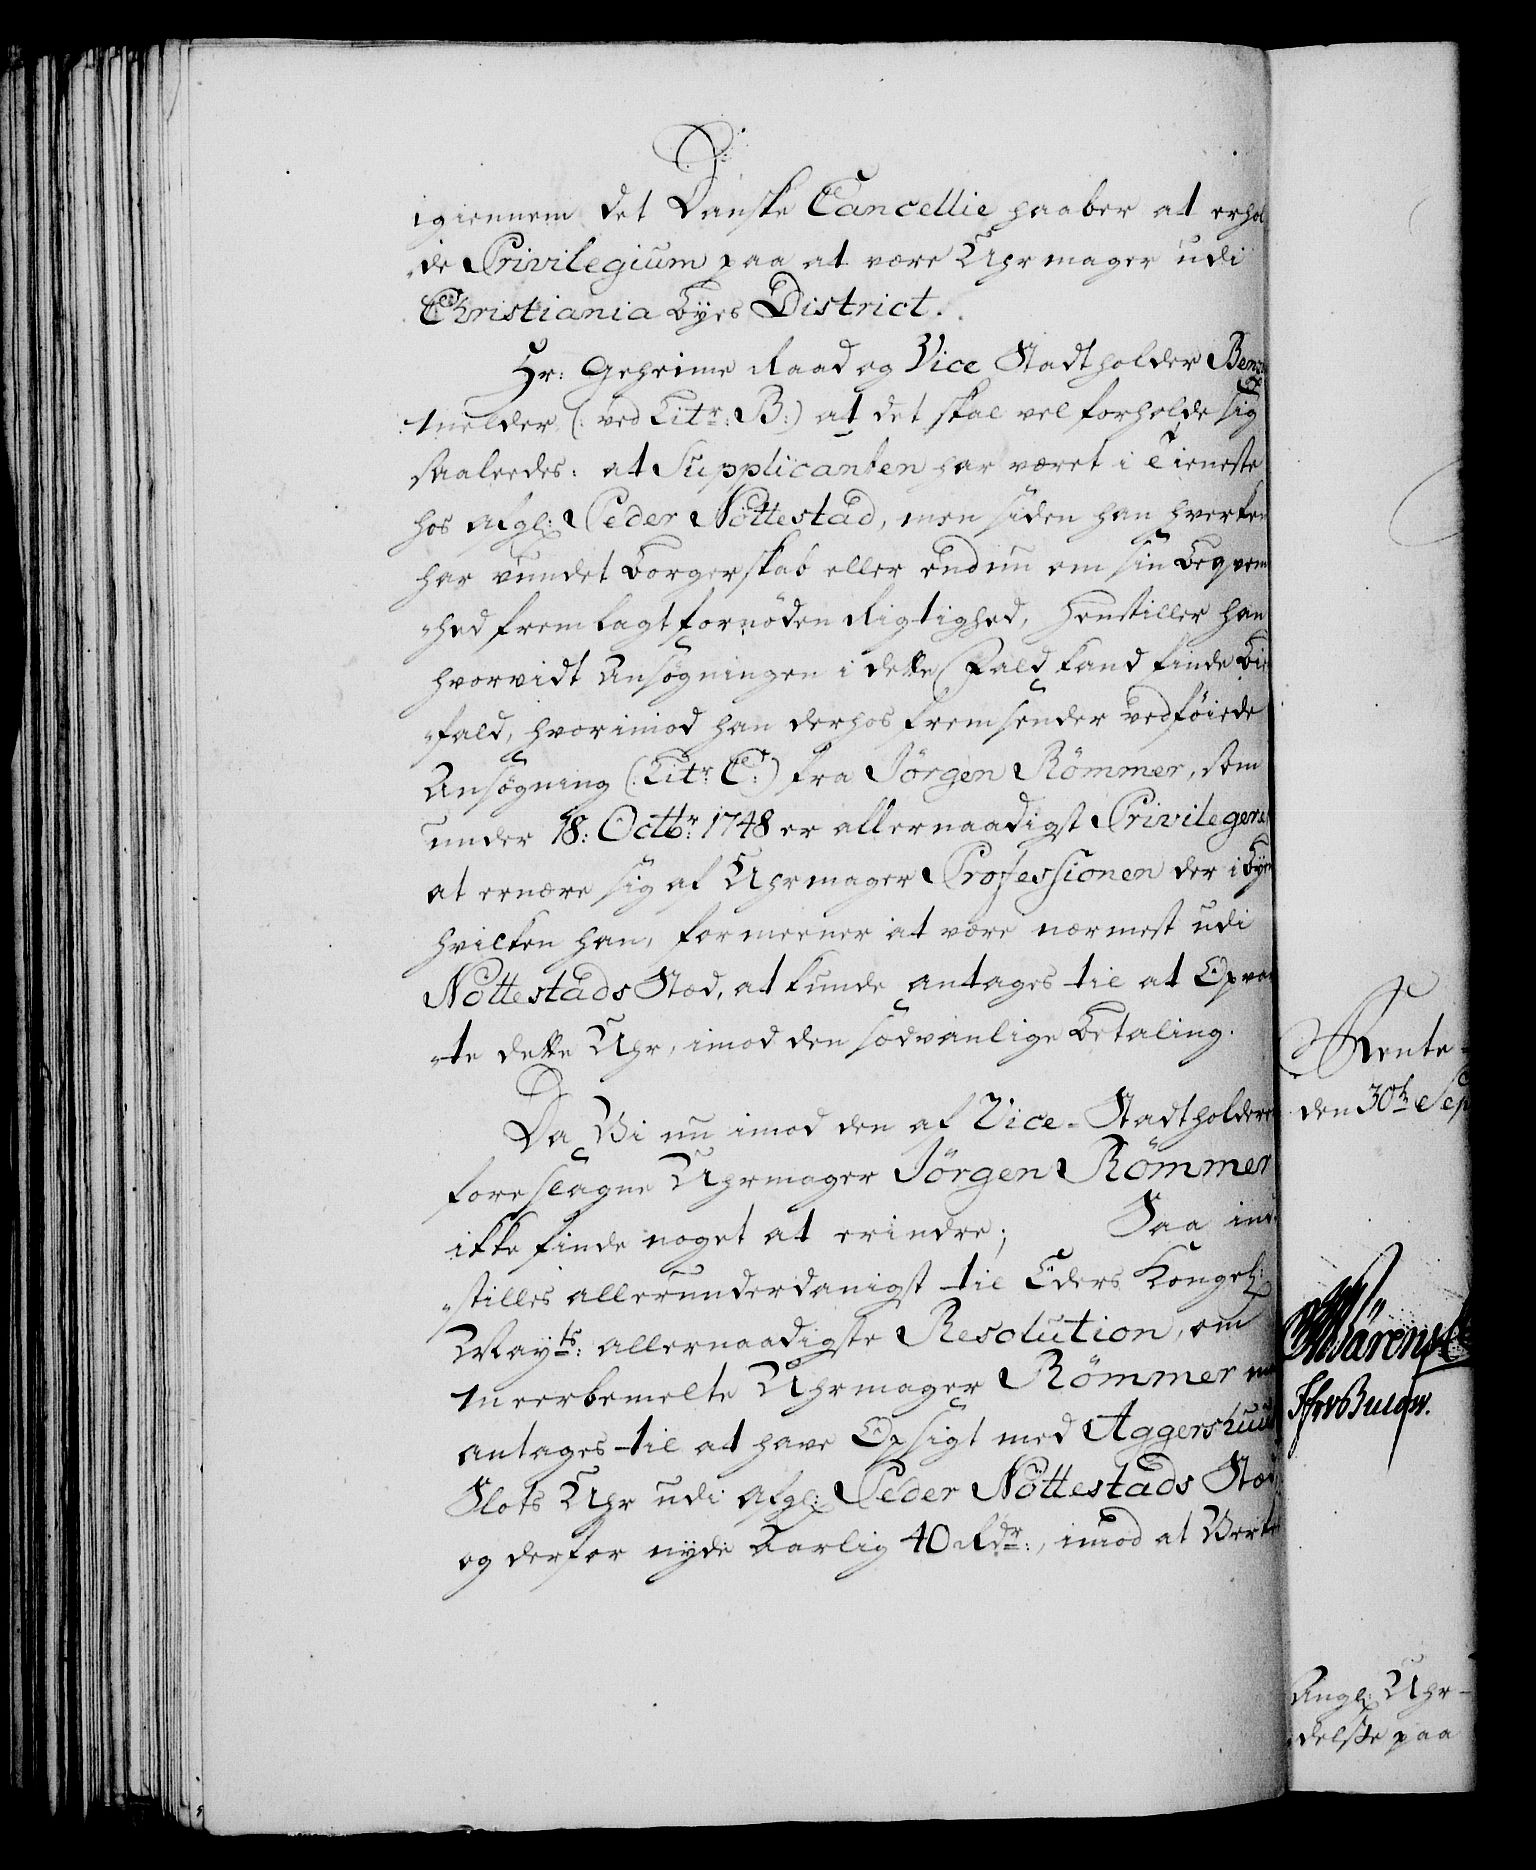 igiennem det Danske Cancellie haaber at erhol
„de Privilegium paa at være Uhrmager udi
Christiania byes District.
Hr: Geheime Raad og Vice Stadtholder Benz
melder (: ved Litr: B:) at det skal vel forholde sig
saaleedes: at Supplicanten har været i Tieneste
hos afgl: Peder Nöttestad, men siden han hverken
har vundet borgerskab eller endnu om sin beqvem
„hed fremlagt fornöden Rigtighed, henstiller han
hvorvidt Ansögningen i dette Fald kand finde bi
„fald, hvorimod han derhos fremsender vedföiede
Ansögning (: Litr: C:) fra Jörgen Römmer, som
under 18: Octbr: 1748 er allernaadigst Privilegere
at ernære sig af Uhrmager Professionen der i bye
hvilken han, formeener at være nærmest udi
Nöttestads Stæd, at kunde antages til at Opvar
„te dette Uhr, imod den sædvanlige betaling.
Da Vi nu imod den af Vice-Stadtholdere
foreslagne Uhrmager Jörgen Römmer
ikke finde noget at erindre; Saa ind
„stilles allerunderdanigst til Eders Kongel:
Mayts: allernaadigste Resolution, om
meerbemelte Uhrmager Römmer m
antages til at have Opsigt med Aggershuus
Slots Uhr udi afgl: Peder Nöttestads Stæd
og derfor nyde Aarlig 40 Rdr:, imod at Verke
Rente-
den 30te Sep
Angl: Uhr-
delse paa